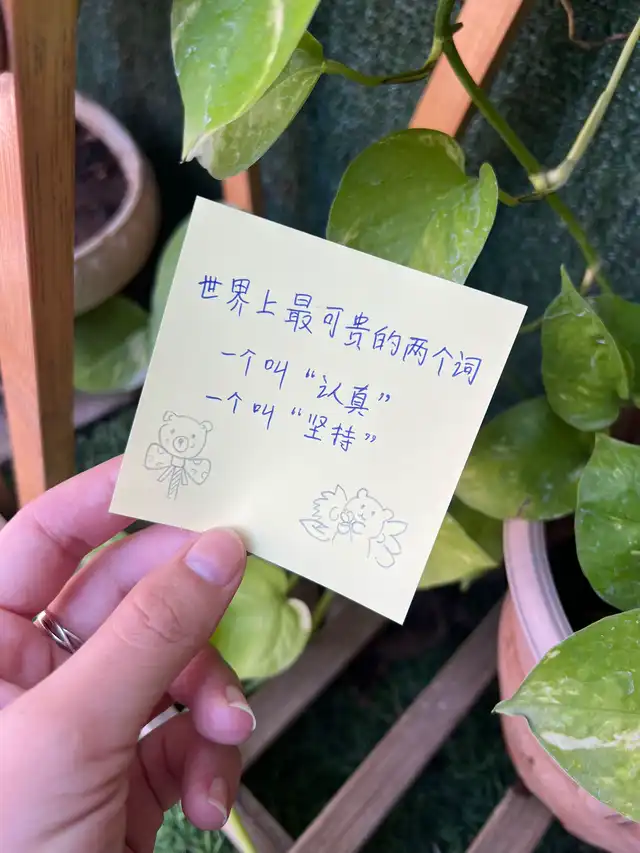 世界上最可贵的两个词
一个叫“认真”
一个叫“坚持”